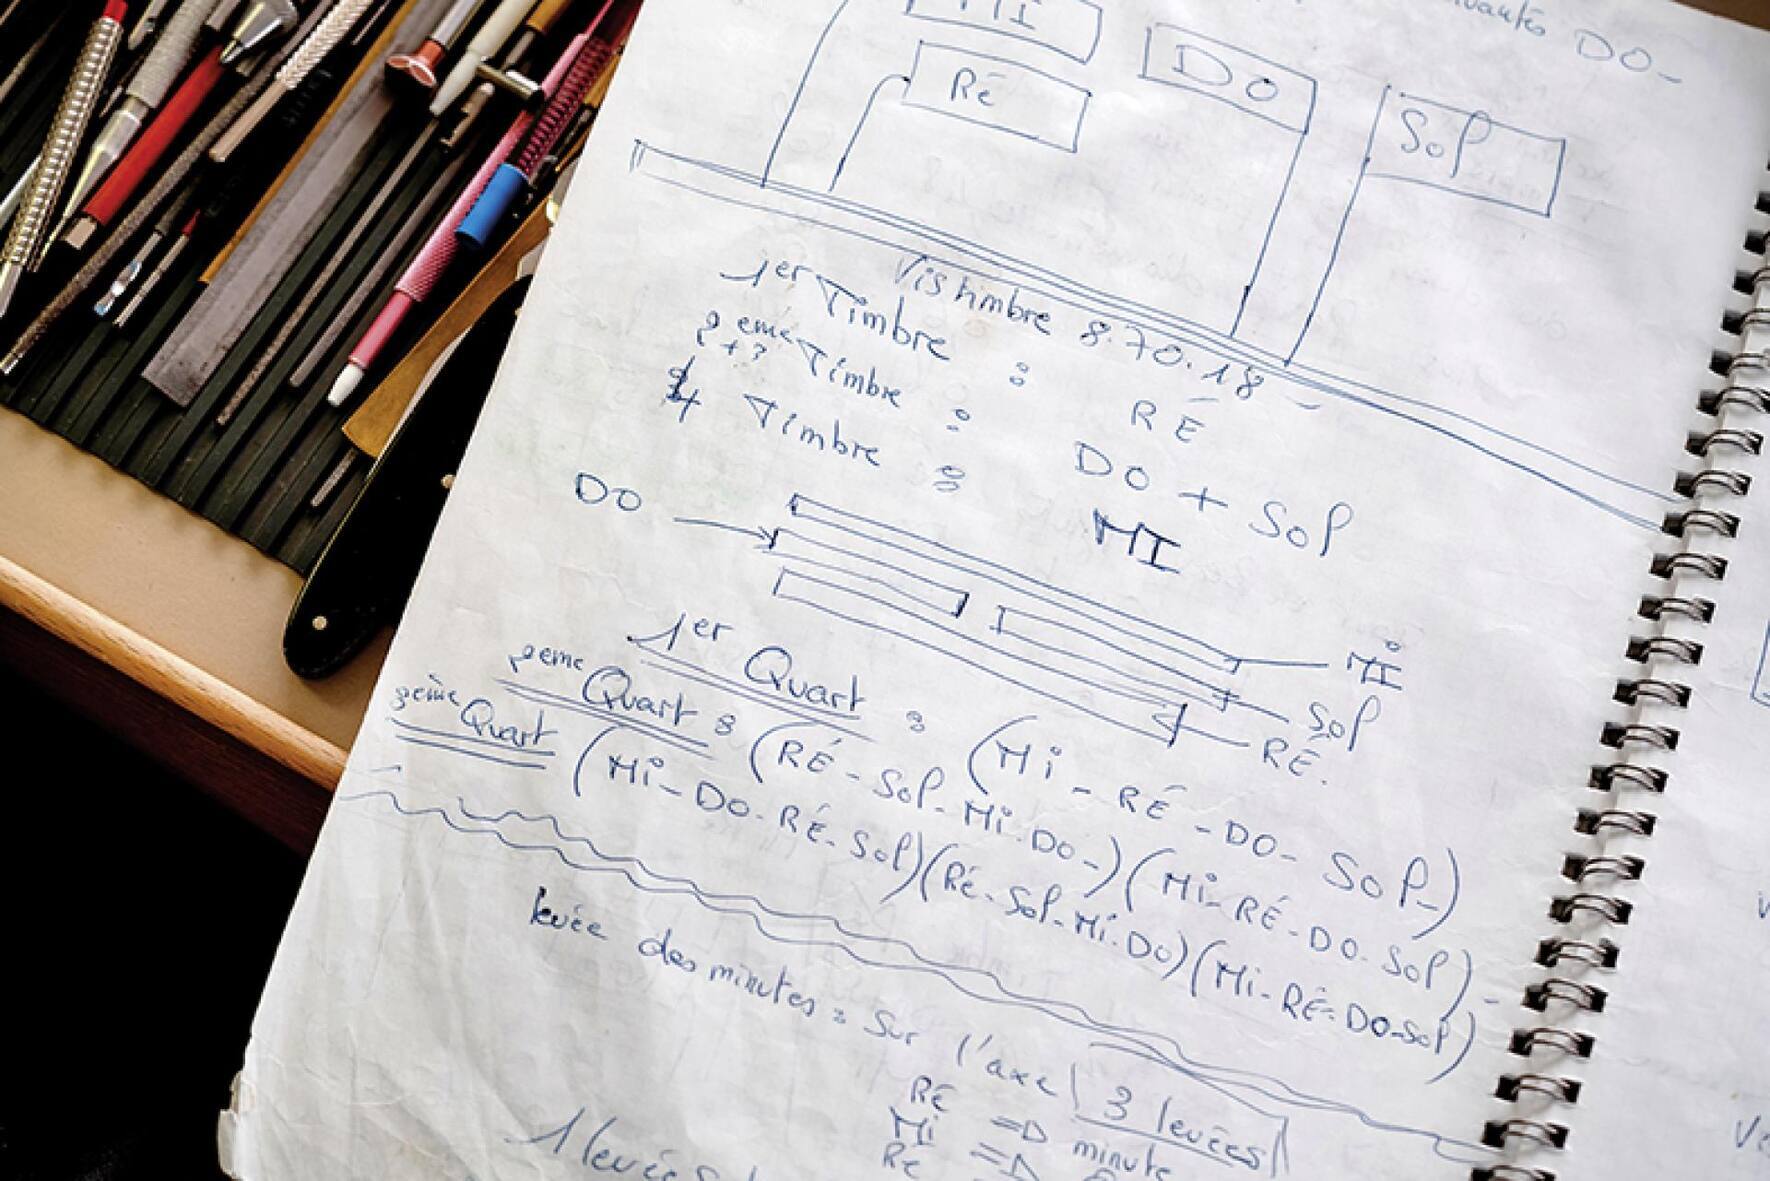 DO-
MI
DO
Ré
Sol
Vis timbre 8.70.18
1er Timbre : RÉ
2eme+3 Timbre : DO + Sol
4 Timbre : MI
DO
Mi
Sol
RÉ.
1er Quart : (Mi - RÉ - DO - Sol-)
2eme Quart : (RÉ - Sol - Mi - DO -) (Mi - RÉ - DO - Sol) -
3ème Quart (Mi - DO - RÉ - Sol) (Ré - Sol - Mi - DO) (Mi - RÉ - DO - Sol)
levée des minutes : Sur l'axe 3 levées
Ré => minute
Mi =>
Ré
1 levée